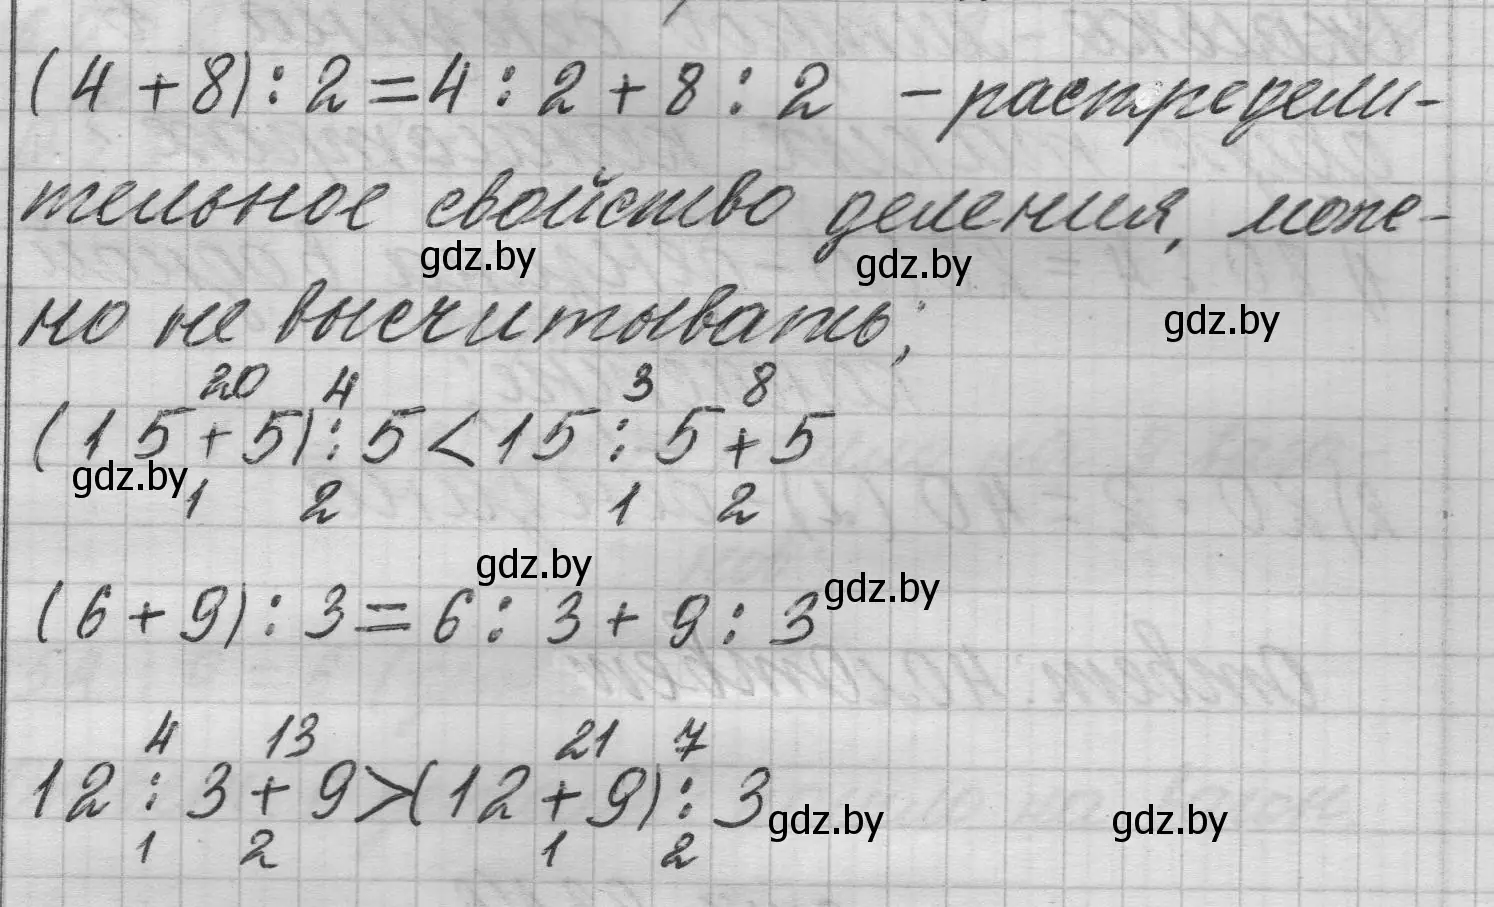 (4 + 8) : 2 = 4 : 2 + 8 : 2 – распредели-
тельное свойство деления, мож-
gdz.by gdz.by
но не высчитывать;
gdz.by
20 4 3 8
(15 + 5) : 5 < 15 : 5 + 5
gdz.by
1 2 1 2
gdz.by gdz.by
(6 + 9) : 3 = 6 : 3 + 9 : 3
4 13 21 7
12 : 3 + 9 > (12 + 9) : 3
gdz.by gdz.by
1 2 1 2